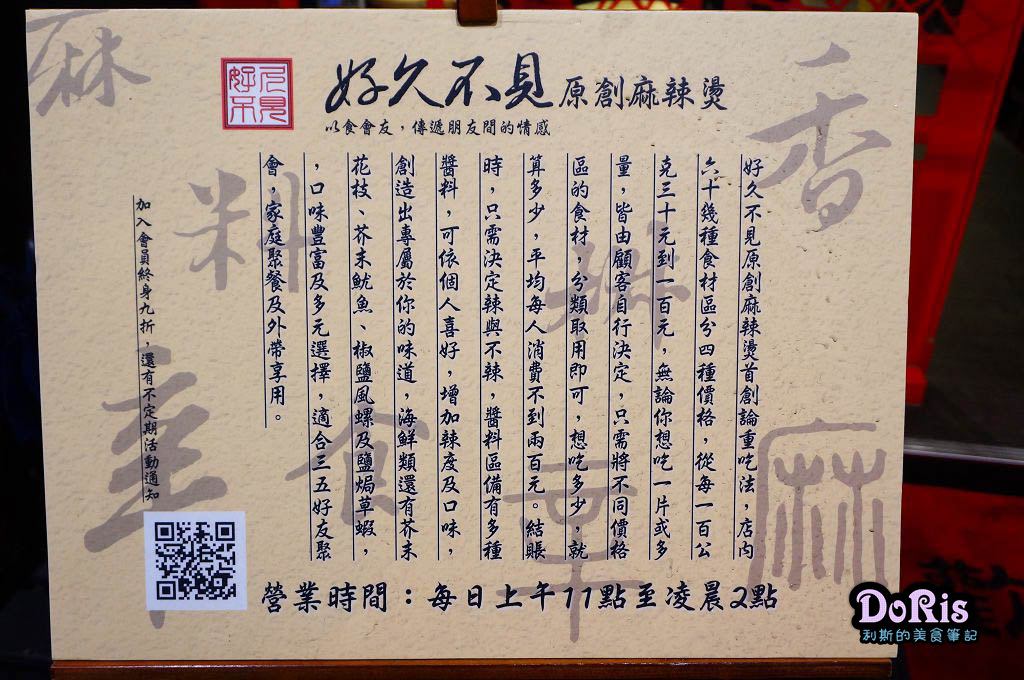 好久不見
好久不見 原創麻辣燙
以食會友，傳遞朋友間的情感
好久不見原創麻辣燙首創論重吃法，店內
六十幾種食材區分四種價格，從每一百公
克三十元到一百元，無論你想吃一片或多
量，皆由顧客自行決定，只需將不同價格
區的食材，分類取用即可，想吃多少，就
算多少，平均每人消費不到兩百元。結賬
時，只需決定辣與不辣，醬料區備有多種
醬料，可依個人喜好，增加辣度及口味，
創造出專屬於你的味道，海鮮類還有芥末
花枝、芥末魷魚、椒鹽風螺及鹽焗草蝦，
，口味豐富及多元選擇，適合三五好友聚
會，家庭聚餐及外帶享用。
加入會員終身九折，還有不定期活動通知
營業時間：每日上午11點至凌晨2點
麻
香
料
食
麻
DoRis
利斯的美食筆記